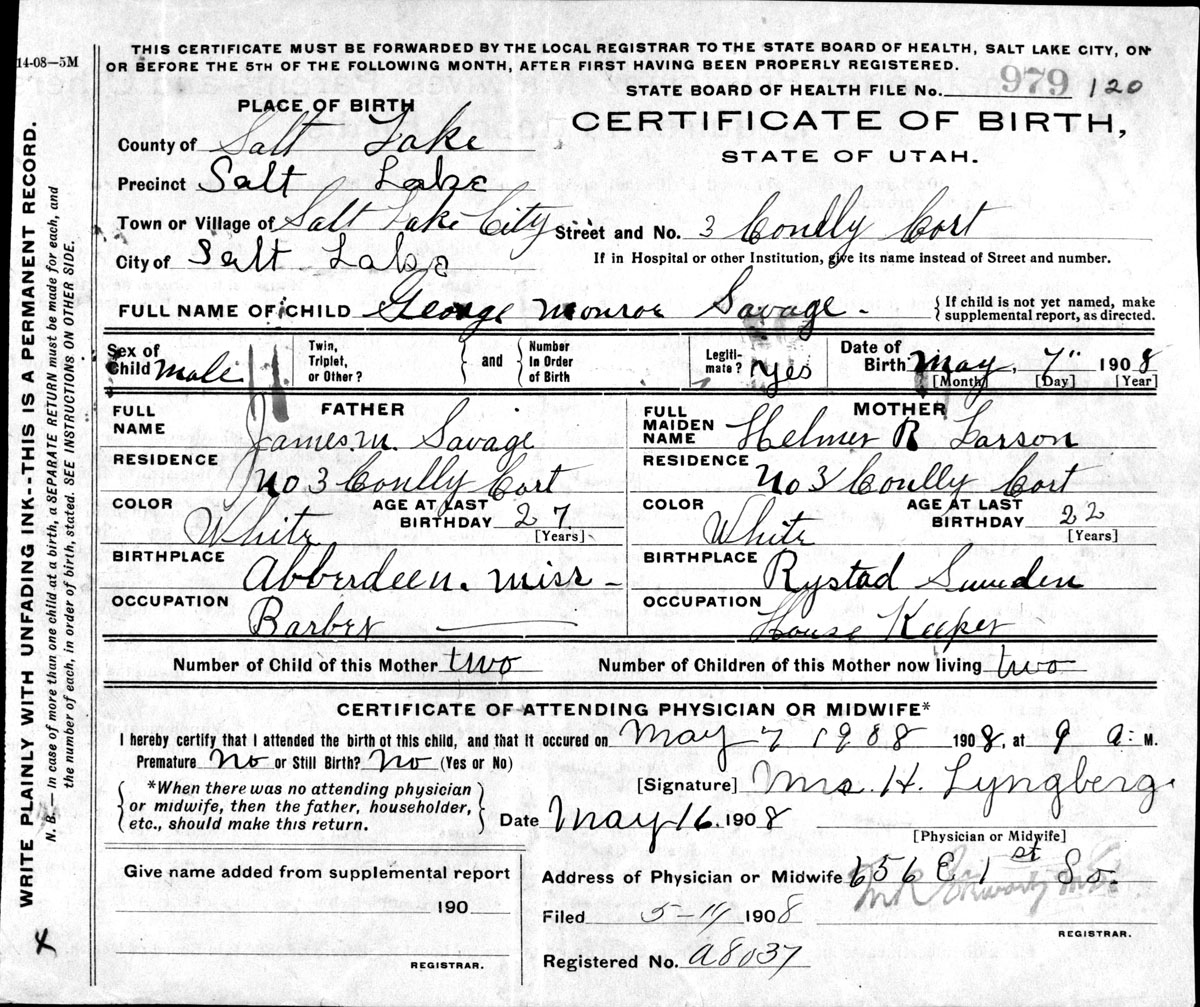 14-08—5M
THIS CERTIFICATE MUST BE FORWARDED BY THE LOCAL REGISTRAR TO THE STATE BOARD OF HEALTH, SALT LAKE CITY, ON
OR BEFORE THE 5TH OF THE FOLLOWING MONTH, AFTER FIRST HAVING BEEN PROPERLY REGISTERED.
STATE BOARD OF HEALTH FILE No. 979 120
PLACE OF BIRTH
CERTIFICATE OF BIRTH,
STATE OF UTAH.
County of Salt Lake
Precinct Salt Lake
Town or Village of Salt Lake City Street and No. 3 Conlly Cort
City of Salt Lake If in Hospital or other Institution, give its name instead of Street and number.
FULL NAME OF CHILD George Monroe Savage - { If child is not yet named, make
supplemental report, as directed.
Sex of Child Male Twin, Triplet, or Other? and Number in Order of Birth Legiti- mate? yes Date of Birth May 7" 1908
[Month] [Day] [Year]
FATHER
FULL NAME James M. Savage
RESIDENCE No 3 Conlly Cort
COLOR White AGE AT LAST BIRTHDAY 27
[Years]
BIRTHPLACE Abberdeen. Miss -
OCCUPATION Barber
MOTHER
FULL MAIDEN NAME Helmer R Larson
RESIDENCE No 3 Conlly Cort
COLOR White AGE AT LAST BIRTHDAY 22
[Years]
BIRTHPLACE Rystad Sweden
OCCUPATION House Keeper
Number of Child of this Mother two Number of Children of this Mother now living two
CERTIFICATE OF ATTENDING PHYSICIAN OR MIDWIFE*
I hereby certify that I attended the birth of this child, and that it occured on May 7 1988 1908, at 9 a. M.
Premature No or Still Birth? No (Yes or No)
[Signature] Mrs. H. Lyngberg
*When there was no attending physician
or midwife, then the father, householder,
etc., should make this return.
Date May 16. 1908
[Physician or Midwife]
Give name added from supplemental report
190
REGISTRAR.
Address of Physician or Midwife 656 E 1st So.
Filed 5-11 1908
REGISTRAR.
Registered No. A8037
WRITE PLAINLY WITH UNFADING INK--THIS IS A PERMANENT RECORD.
N. B.—In case of more than one child at a birth, a SEPARATE RETURN must be made for each, and
the number of each, in order of birth, stated. SEE INSTRUCTIONS ON OTHER SIDE.